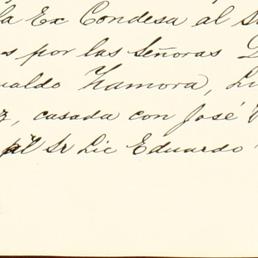 la Ex Condesa al S
s por las señoras D
ualdo Zamora, Lu
z, casada con José
al Sr Lic Eduardo